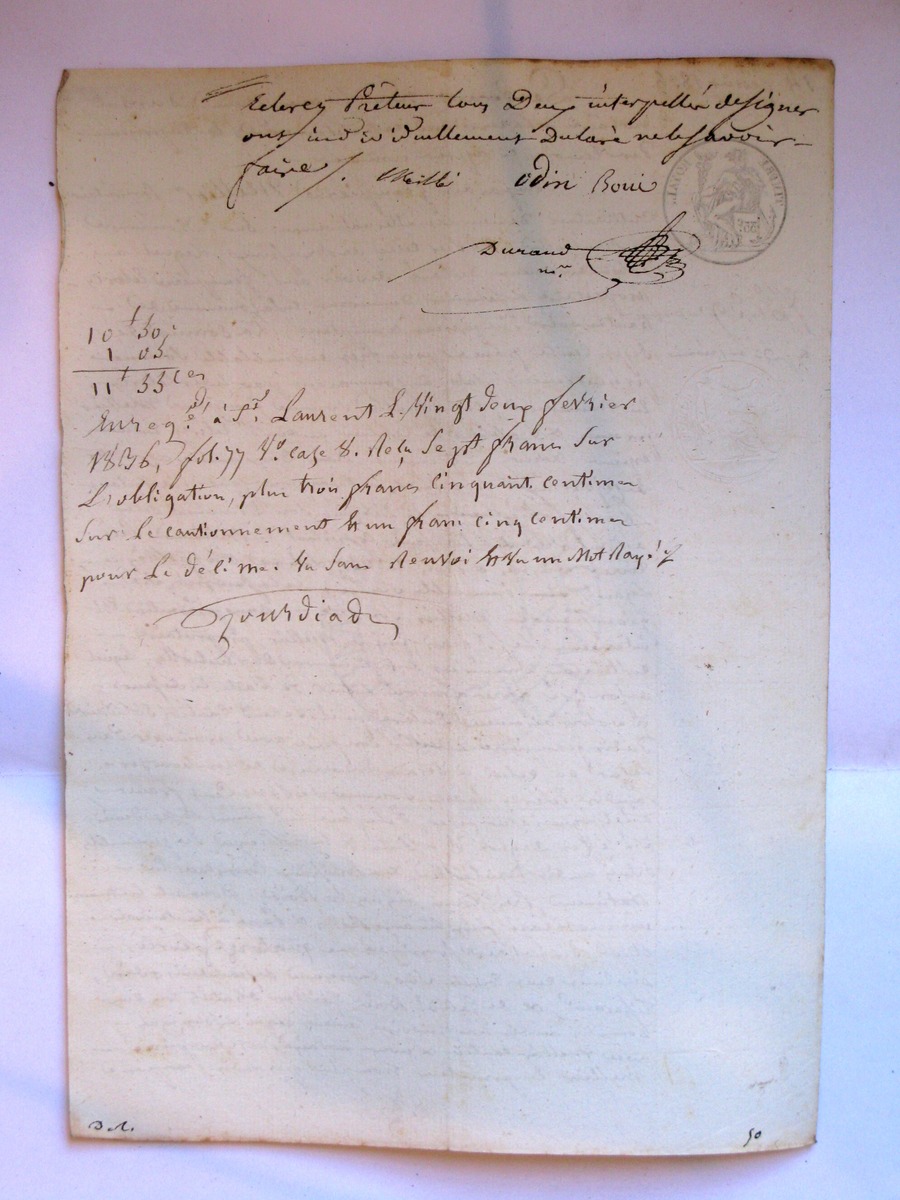 Eclercy Prêteur tous Deux interpellés de signer
ont individuellement Déclaré ne le savoir
faire /. odin Boui
Durand
nre
10f 50c
1 05
11f 55 cen
Enregé à St Laurent Le Vingt deux fevrier
1836, fol. 77 Vo case 8. Reçu Sept francs Sur
L'obligation, plus trois francs Cinquante centimes
Sur Le cautionnement & un franc cinq Centimes
pour Le décime. Vu Sans Renvoi & Vu un Mot Rayé
50